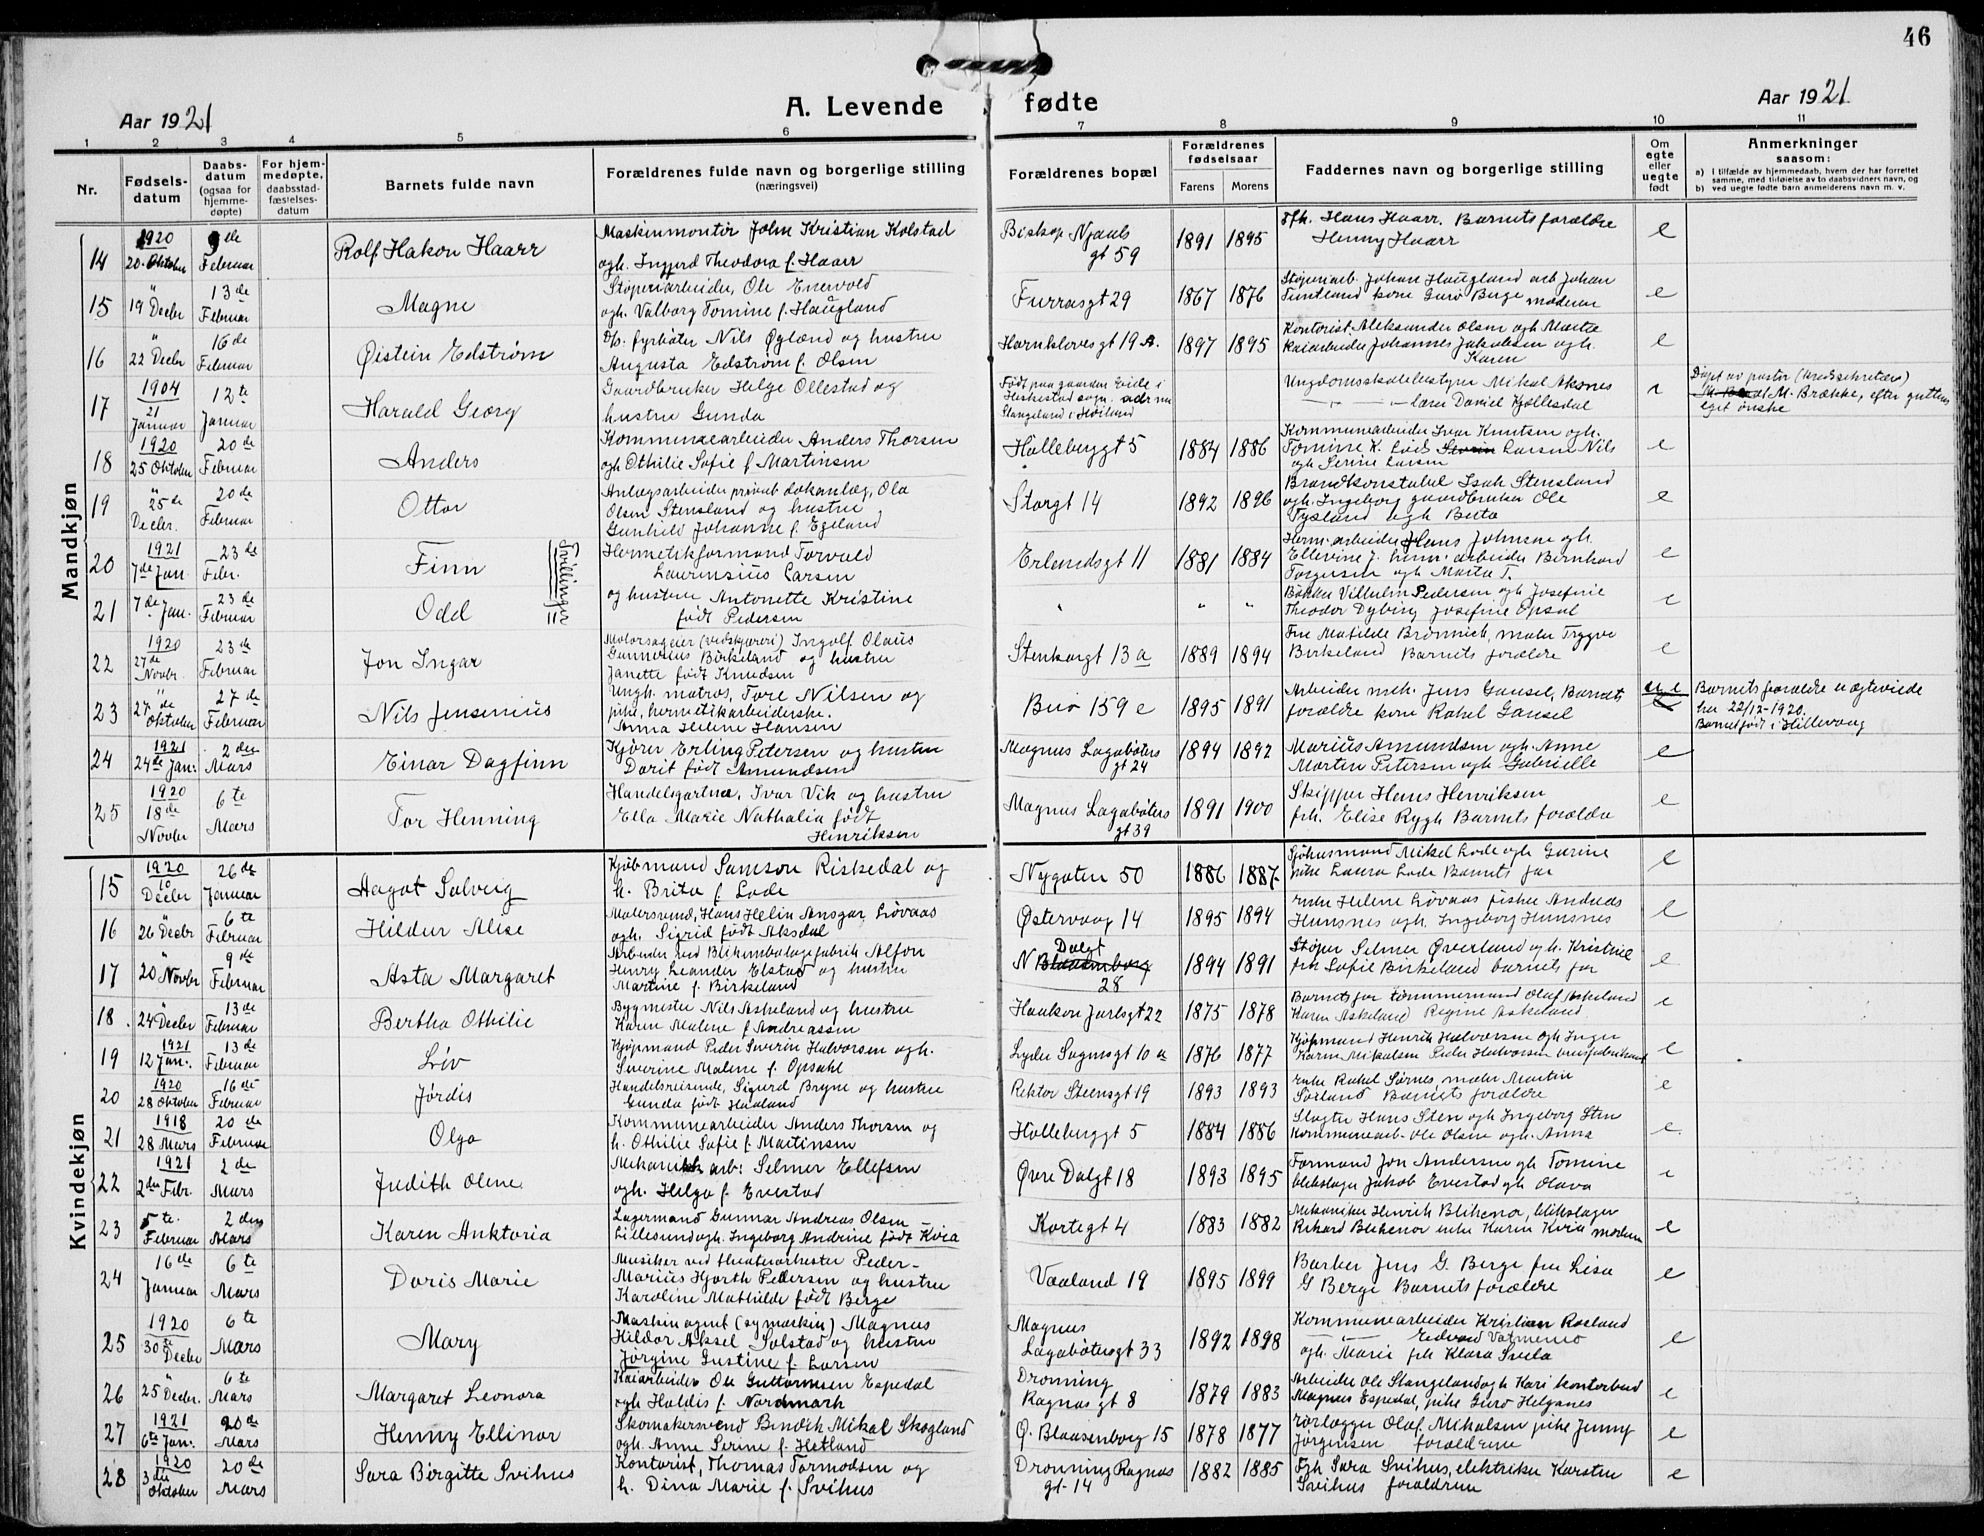 46
Aar 1921
A. Levende fødte
Aar 1921
1 2 3 4 5 6 7 8 9 10 11
Nr.
Fødselsdatum
Daabsdatum (ogsaa for hjemmedøpte)
For hjemmedøpte, daabsstadfæstelsesdatum
Barnets fulde navn
Forældrenes fulde navn og borgerlige stilling (næringsvei)
Forældrenes bopæl
Forældrenes fødselsaar
Farens Morens
Faddernes navn og borgerlige stilling
Om egte eller uegte født
Anmerkninger
saasom:
a) I tilfælde av hjemmedaab, hvem der har forrettet samme, med tilføielse av to daabsvidners navn, og
b) ved uegte fødte barn anmelderens navn m. v.
Mandkjøn
14 1920 20. Oktober 9de Februar Rolf Hakon Haarr
Maskinmontør John Kristian Kolstad
ogh. Ingjerd Theodora f. Haarr
Biskop Njaals gt 59 1891 1895
Frk. Hans Haarr. Barnets forældre
Henny Haarr e
15 " 19 Decbr 13de Februar Magne
Støperiarbeider, Ole Enervold
ogh. Valborg Tomine f. Haugland
Furrasgt 29 1867 1876
Støperiarb. Johan Haugland arb Johan
Tuntland kone Guro Berge moderen e
16 " 22 Decbr 16de Februar Øistein Edstrøm
D/s. fyrbøter Nils Øglænd og hustru
Augusta Edstrøm f. Olsen
Harnkloves gt 19 A. 1897 1895
Kontorist Aleksander Olsen ogh Martha
Kaiarbeider Johannes Jakobsen ogh.
Karen e
17 1904 21 Januar 12te Januar Harald Georg
Gaardbruker Helge Ollestad og
hustru Gunda
Født paa gaarden Eide i
Heskestad sogn. adr nu
Stangeland i Høiland
Ungdomsskolebestyrer Mikal Aknes
— " — lærer Daniel Kjøllesdal
M. Brække, efter guttens
eget ønske
18 1920 25 Oktober 20de Februar Anders
Kommunearbeider Anders Thorsen
ogh Othilie Sofie f Martinsen
Hollebergt 5 1884 1886
Kommunearbeider Ivar Knutsen ogh.
Tomine K. Larsen Nils
ogh Serine Larsen e
19 " 25de Decbr. 20de Februar Ottar
Anlegsarbeider privat dokanlæg, Ola
Olsen Stensland og hustru
Gunhild Johanne f. Egeland
Storgt 14 1892 1896
Brandkonstabel Isak Stensland
ogh. Ingeborg gaardbruker Ole
Tysland ogh Berta e
20 1921 7de Jan. 23de Febr. Finn
Tvillinger
Hermetikformand Torvald
Laurensius Larsen
Erlendsgt 11 1881 1884
Herm. arbeider Hans Johnsen ogh.
Ellevine J. herm. arbeider Bernhard
Torgersen ogh Marta T. e
21 7de Jan. 23de Februar Odd
og hustru Antonette Kristine
født Pedersen
" " "
Bøkker Vilhelm Pedersen ogh Josefine
Theodor Dybing Josefine Opsal e
22 1920 27de Novbr. 23de Februar Jon Ingar
Motorsageier (vedskjæreri) Ingolf Olaus
Gunnerius Birkeland og hustru
Janette født Knudsen
Stenkargt 13 a 1889 1894
Fru Matilde Brønnich, maler Trygve
Birkeland Barnets forældre e
23 " 27de Oktober 27de Februar Nils Jensenius
Ungk. matros, Tore Nilsen og
pike, hermetikarbeiderske.
Anna Helene Hansen
Buø 159 e 1895 1891
Arbeider mek. Jens Gausel, Barnets
forældre kone Rakel Gausel ue
Barnets forældre er egteviede
her 22/12-1920.
Barnet født i Hillevaag
24 1921 24de Jan. 2den Mars Einar Dagfinn
Kjører Erling Petersen og hustru
Dorit født Amundsen
Magnus Lagabøters gt 24 1894 1892
Marius Amundsen ogh. Anne
Marten Petersen ogh Gabrielle e
25 1920 18de Novbr 6te Mars Tor Henning
Handelsgartner, Ivar Vik og hustru
Ella Marie Nathalia født
Henriksen
Magnus Lagabøters gt 39 1891 1900
Skipper Hans Henriksen
frk. Elise Rygh Barnets forældre e
Kvindekjøn
15 1920 10 Decbr 26de Januar Aagot Solveig
Kjøbmand Samson Riskedal og
h. Brita f Lode
Nygaten 50 1886 1887
Sjøhusmand Mikel Lode ogh Gurine
pike Laura Lode Barnets far e
16 " 26 Decbr 6te Februar Hildur Alise
Malersvend, Hans Helin Ansgar Løvaas
ogh. Sigrid født Aksdal
Østervaag 14 1895 1894
enke Helene Løvaas fisker Andreas
Humsnes ogh. Ingeborg Humsnes e
17 " 20 Novbr 9de Februar Asta Margaret
Arbeider ved Blikemballagefabrik Alfon
Henry Leander Elstad og hustru
Martine f. Birkeland
N Dalgt Blaasenborg 28 1894 1891
Støper Selmer Øverland ogh. Kristine
frk Sofie Birkeland barnets far e
18 " 24 Decbr 13de Februar Bertha Othilie
Bygmester Nils Askeland og hustru
Karen Malene f Andreassen
Haakon Jarlsgt 22 1875 1878
Barnets far tømmermand Olaf Askeland
Karen Askeland Regine Askeland e
19 1921 12 Jan. 13de Februar Liv
Kjøpmand Peder Severin Halvorsen ogh.
Severine Malene f. Opsahl
Lyder Sagensgt 10 a 1876 1877
Kjøpmand Henrik Halvorsen ogh Inger
Karen Mikalsen Peder Halvorsen e
20 1920 28 Oktober 16de Februar Jørdis
Handelsreisende, Sigurd Bryne og hustru
Gunda født Haaland
Rektor Steensgt 19 1893 1893
enke Rakel Sørnes, maler Martin
Sørland Barnets forældre e
21 1918 28 Mars 20de Februar Olga
Kommunearbeider Anders Thorsen og
h. Othilie Sofie f. Martinsen
Hollebergt 5 1884 1886
Slagter Hans Sten og Ingeborg Sten
Kommunearb. Ole Olsen ogh. Anna e
22 1921 2den Febr. 2den Mars Judith Olene
Mekanisk arb. Selmer Ellefsen
ogh. Helga f. Evestad
Øvre Dalgt 18 1893 1895
Formand Jon Andersen ogh Tomine
blikslager Jakob Evestad ogh Olava e
23 5te. Februar 2den Mars Karen Anktoria
Lagermand Gunnar Andreas Olsen
Lillesund ogh. Ingeborg Andrine født Kvia
Kortegt 4 1883 1882
Mekaniker Henrik Blikenor, blikslager
Rikard Blikenor enke Karen Kvia moderen e
24 16de Januar 6te Mars Doris Marie
Musiker ved theaterorkester Peder
Marius Hjorth Pedersen og hustru
Karoline Mathilde født Berge
Vaaland 19 1895 1899
Barber Jens G. Berge fru Lisa
G Berge Barnets forældre e
25 1920 30te Decbr 6te Mars Mary
Maskinagent (symaskin) Magnus
Hildor Aksel Solstad og hustru
Jørgine Gustine f. Larsen
Magnus Lagabøtersgt 33 1892 1898
Kommunearbeider Kristian Rosland
— " — Edvard Vatnemo
ogh. Marie frk Klara Svela e
26 " 25 Decbr. 6te Mars Margaret Leonora
Kaiarbeider Ole Guttormsen Espedal
ogh Haldis f. Nordmark
Dronning Ragnas gt 8 1879 1883
Arbeider Ole Stangeland ogh Kari kontorbud
Magnus Espedal, pike Guro Helganes e
27 1921 6te Jan. 20de Mars Henny Ellinor
Skomakersvend Bendik Mikal Skogland
ogh. Anne Serine f. Hetland
Ø. Blaasenborg 15 1878 1877
rørlægger Olaf Mikalsen pike Jenny
Jørgensen forældrene e
28 1920 3die Oktober 20de Mars Sara Birgitte Svihus
Kontorist, Thomas Tormodsen og
h. Dina Marie f. Svihus
Dronning Ragnas gt. 14 1882 1885
Frk Sara Svihus, elektriker Karsten
Svihus forældrene e